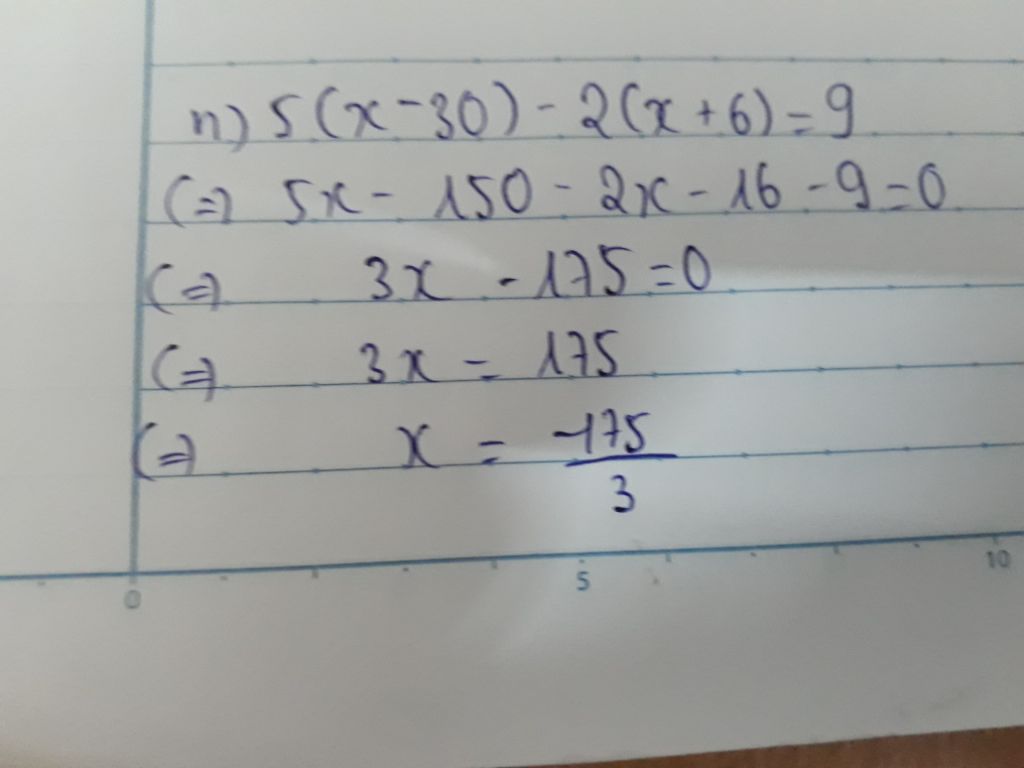 n) 5(x-30) - 2(x+6) = 9
(=) 5x - 150 - 2x - 16 - 9 = 0
(=) 3x - 175 = 0
(=) 3x = 175
(=) x = -175/3
0 5 10